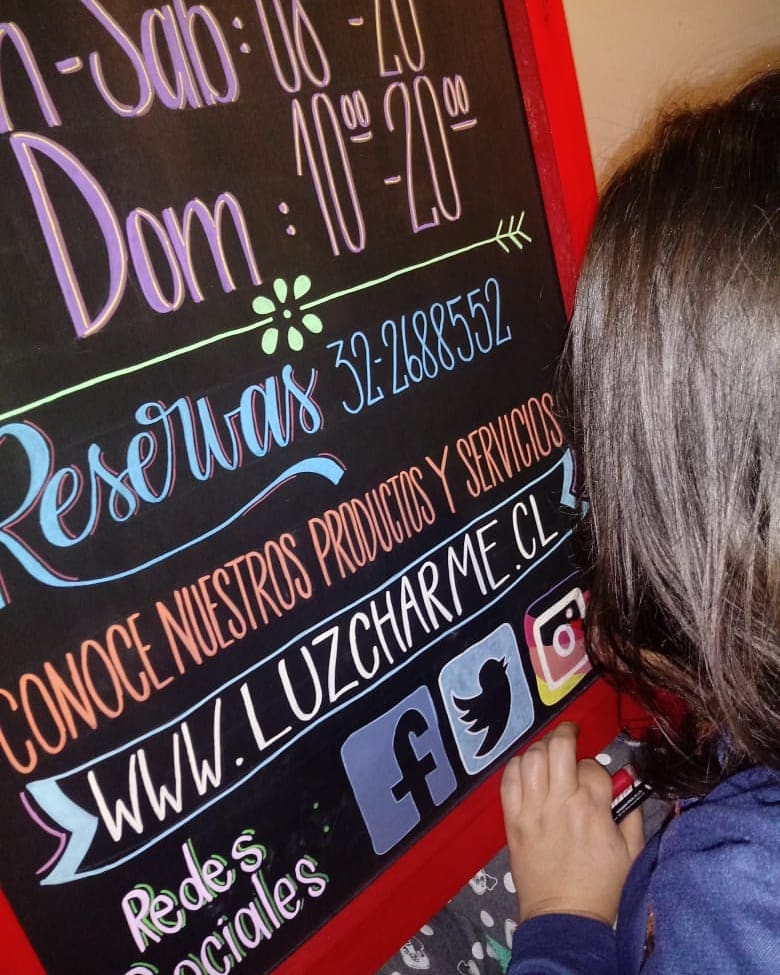 n-Sab: 08 - 20
Dom : 10⁰⁰ - 20⁰⁰
Reservas 32-2688552
CONOCE NUESTROS PRODUCTOS Y SERVICIOS
WWW.LUZCHARME.CL
f
Redes
Sociales